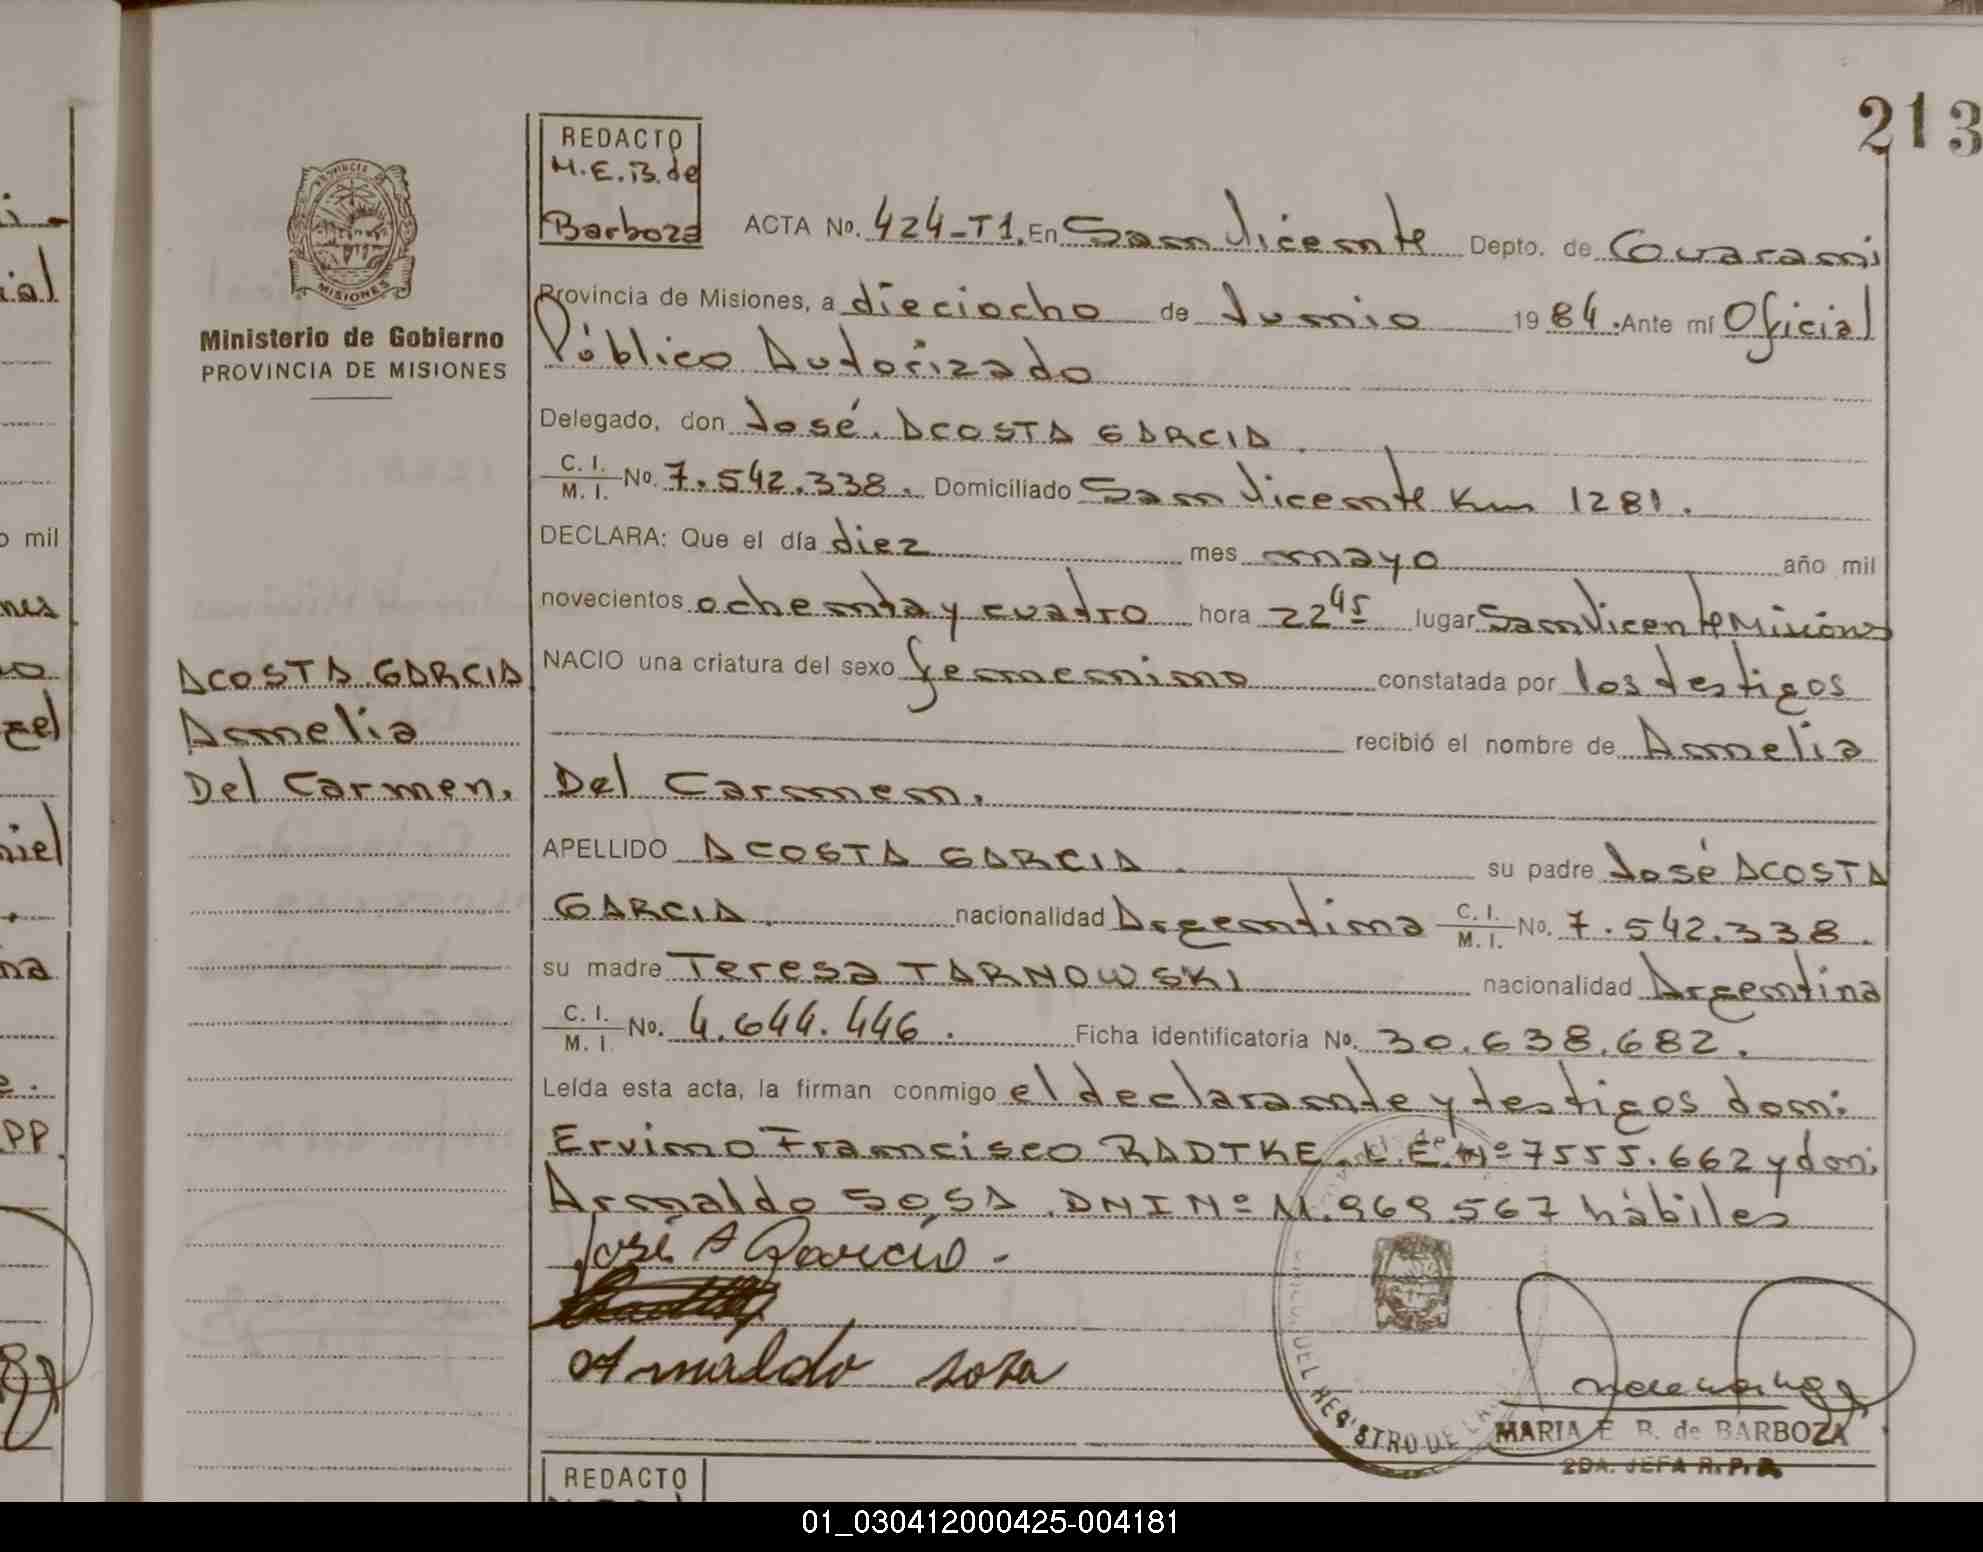 213
REDACTO
M.E.B. de
Barboza
PROVINCIA DE
MISIONES
Ministerio de Gobierno
PROVINCIA DE MISIONES
ACTA No. 424-T1. En San Vicente Depto. de Guarani
Provincia de Misiones, a dieciocho de Junio 1984. Ante mí Oficial
Público Autorizado
Delegado, don José. ACOSTA GARCIA.
C. I. / M. I. No. 7.542.338. Domiciliado San Vicente Km 1281.
DECLARA: Que el día diez mes mayo año mil
novecientos ochenta y cuatro hora 22 45 lugar San Vicente Misiones
NACIO una criatura del sexo femenino constatada por los testigos
recibió el nombre de Amelia
Del Carmen.
APELLIDO ACOSTA GARCIA. su padre José ACOSTA
GARCIA. nacionalidad Argentina C. I. / M. I. No. 7.542.338.
su madre Teresa TARNOWSKI nacionalidad Argentina
C. I. / M. I. No. 4.644.446. Ficha identificatoria No. 30.638.682.
Leída esta acta, la firman conmigo el declarante y testigos don:
Ervino Francisco RADTKE. L.E. Nº 7555.662 y don:
Arnaldo SOSA. DNI Nº 11.969.567 hábiles
José A Garcia -
Arnaldo sosa
ACOSTA GARCIA
Amelia
Del Carmen.
DEL REGISTRO DE LA
MARIA E. B. de BARBOZA
2DA. JEFA R.P.P.
REDACTO
i-
ial
o mil
nes
gel
niel
na
PP.
01_030412000425-004181